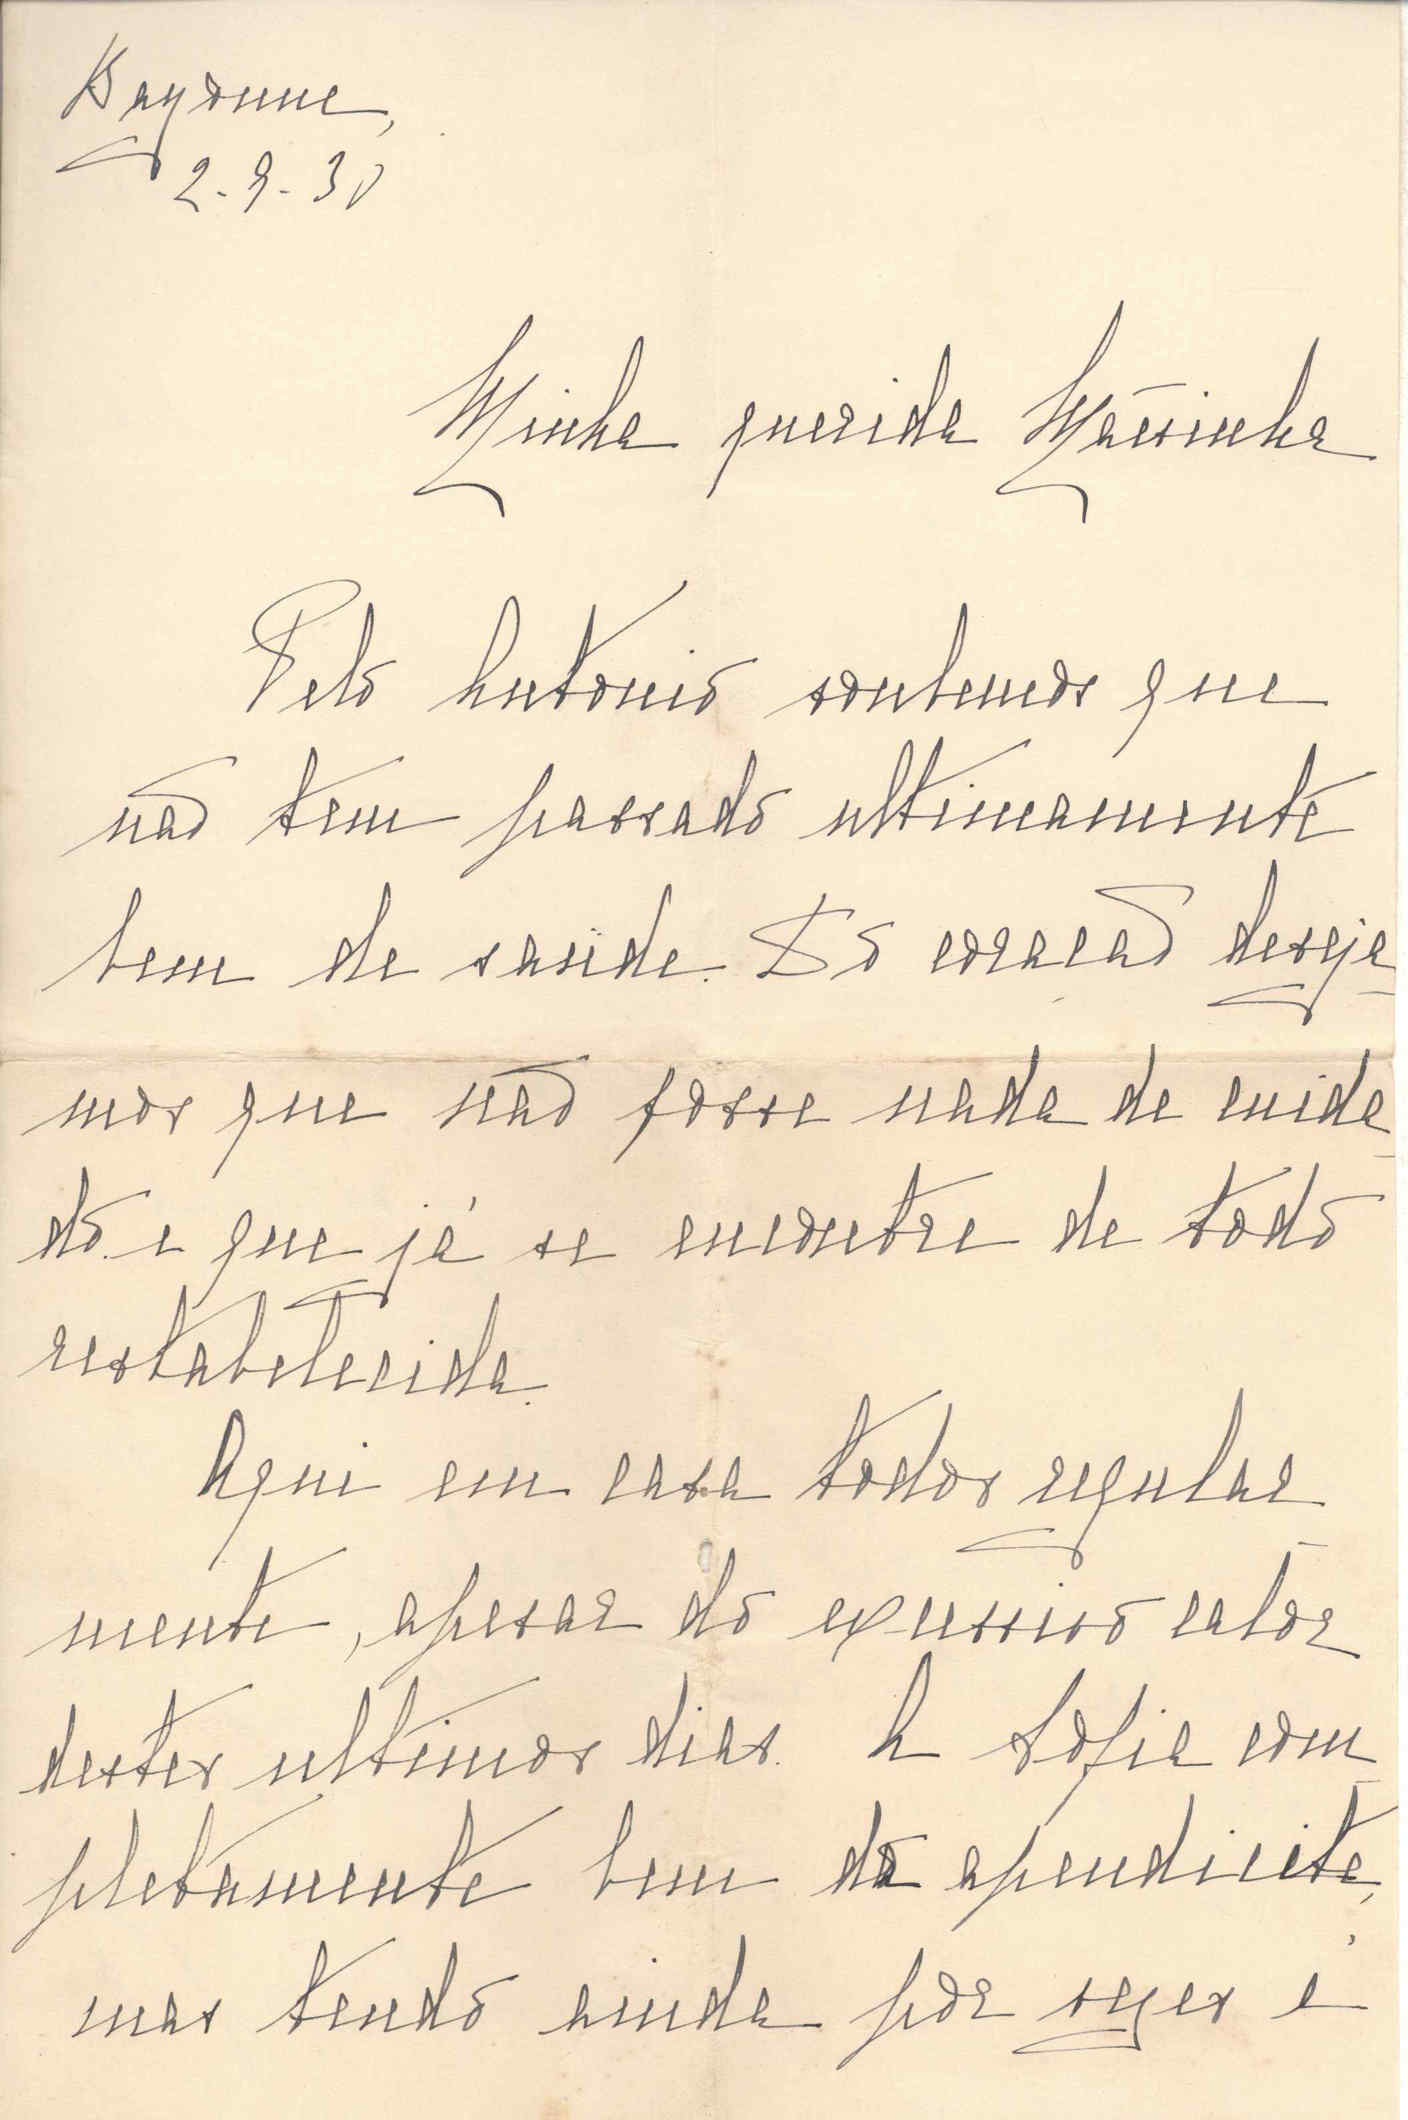 Bayonne,
2-9-30
Minha querida Mãesinha
Pelo Antonio soubemos que
não tem passado ultimamente
bem de saúde. Do coração deseja-
mos que não fosse nada de cuida-
do e que já se encontre de todo
restabelecida.
Aqui em casa todos regular-
mente, apesar do excessivo calor
destes ultimos dias. A Sofia com-
pletamente bem da apendicite,
mas tendo ainda por vezes é